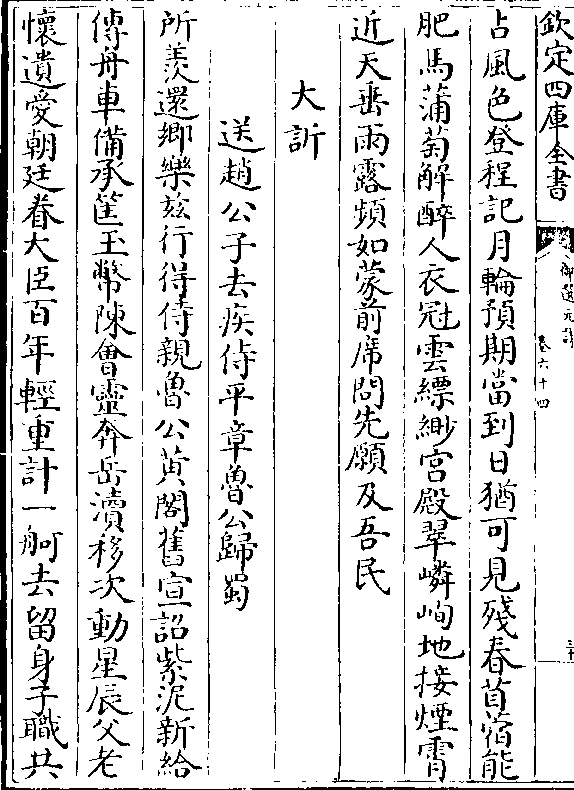 欽定四庫全書
御選元詩
卷六十四
三十
占風色登程記月輪預期當到日猶可見殘春苜蓿能
肥馬蒲萄解醉人衣冠雲縹緲宮殿翠嶙峋地接煙霄
近天垂雨露頻如蒙前席問先願及吾民
大訢
送趙公子去疾侍平章魯公歸蜀
所羨還鄉樂兹行得侍親魯公黄閣舊宣詔紫泥新給
傳舟車備承筐玉幣陳會靈奔岳瀆移次動星辰父老
懷遺愛朝廷眷大臣百年輕重計一舸去留身子職共